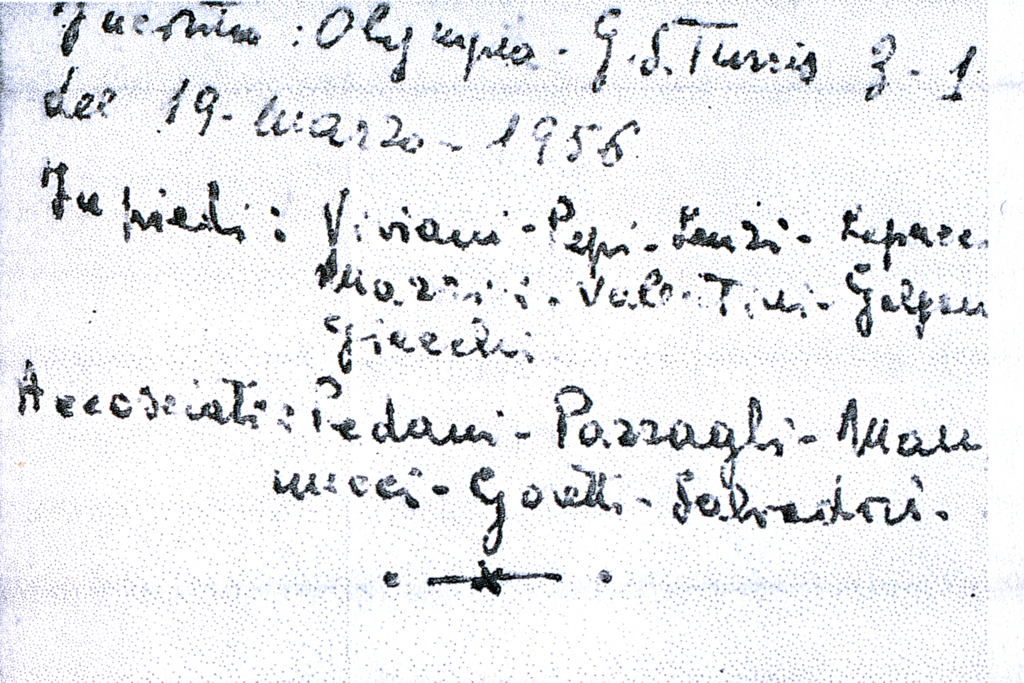 Incontro: Olympia - G.S. Turris 3-1
del 19 - marzo - 1956
In piedi: Viviani - Pepi - Lenzi -
Mazzini - Valentini - Galgan
Giacchi
Accosciati: Pedani - Pazzagli - Man
nucci - Goretti - Salvadori.